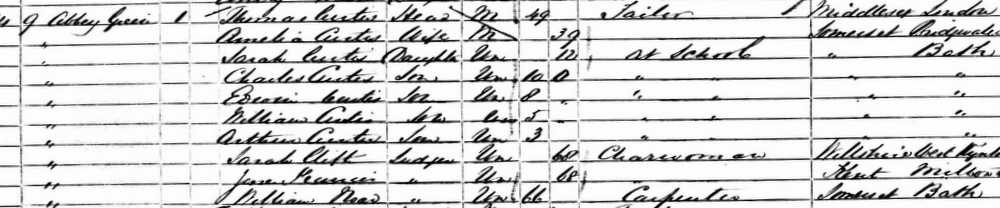 9 Abbey Green 1 Thomas Curtis Head M 49 Tailor Middlesex London
" Amelia Curtis Wife M 39 Somerset Bridgwater
" Sarah Curtis Daughter Un 12 at School " Bath
" Charles Curtis Son Un 10 " " " "
" Edwin Curtis Son Un 8 " " " "
" William Curtis Son Un 5 " " " "
" Arthur Curtis Son Un 3 " " " "
" Sarah Clift Lodger Un 68 Charwoman Wiltshire West
" Jane " Un 68 Kent Milton
" William " Un 66 Carpenter Somerset Bath